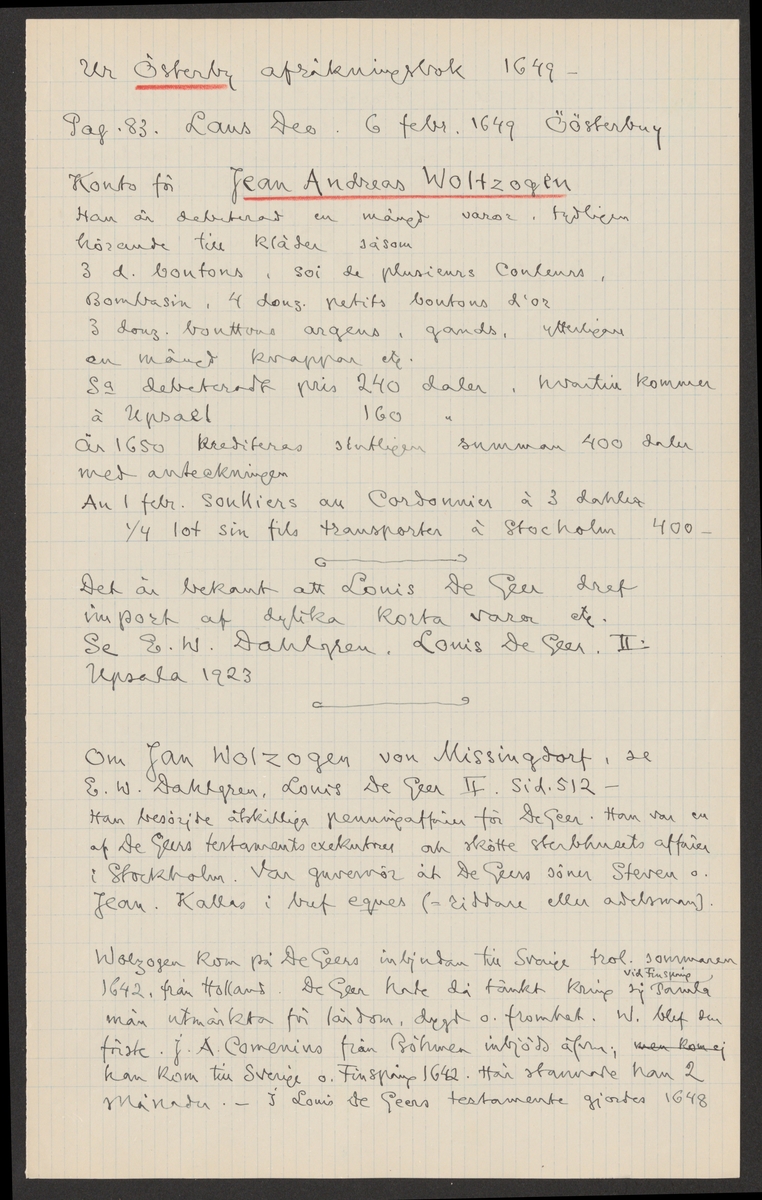 Ur Österby afräkningsbok 1649 –
Pag. 83. Laus Deo. 6 febr. 1649 Öösterbuy
Konto för Jean Andreas Woltzogen
Han är debeterad en mängd varor, tydligen
hörande till kläder såsom
3 d. boutons, soi de plusieurs Couleurs,
Bombasin, 4 douz. petits boutons d'or
3 douz. bouttons argens, gands, ytterligare
en mängd knappar etc.
Sa debeteradt pris 240 daler, hvartill kommer
à Upsael 160 "
År 1650 krediteras slutligen summan 400 daler
med anteckningen
An 1 febr. soulliers au Cordonnier à 3 dahler
1/4 lot sin fils transporter à Stocholm 400 –
Det är bekant att Louis De Geer dref
import af dylika korta varor etc.
Se E. W. Dahlgren, Louis De Geer, II:
Upsala 1923
Om Jan Wolzogen von Missingdorf, se
E. W. Dahlgren, Louis De Geer II. Sid. 512 –
Han besörjde åtskilliga penningaffärer för De Geer. Han var en
af De Geers testamentsexekutorer och skötte sterbhusets affärer
i Stockholm. Var guvernör åt De Geers söner Steven o.
Jean. Kallas i bref eques (= riddare eller adelsman).
Wolzogen kom på De Geers inbjudan till Sverige trol. sommaren
1642, från Holland. De Geer hade då tänkt kring sig vid Finspång samla
män utmärkta för lärdom, dygd o. fromhet. W. blef den
förste. J. A. Comenius från Böhmen inbjöds äfven; men kom ej
han kom till Sverige o. Finspång 1642. Här stannade han 2
månader. – I Louis De Geers testamente gjordes 1648